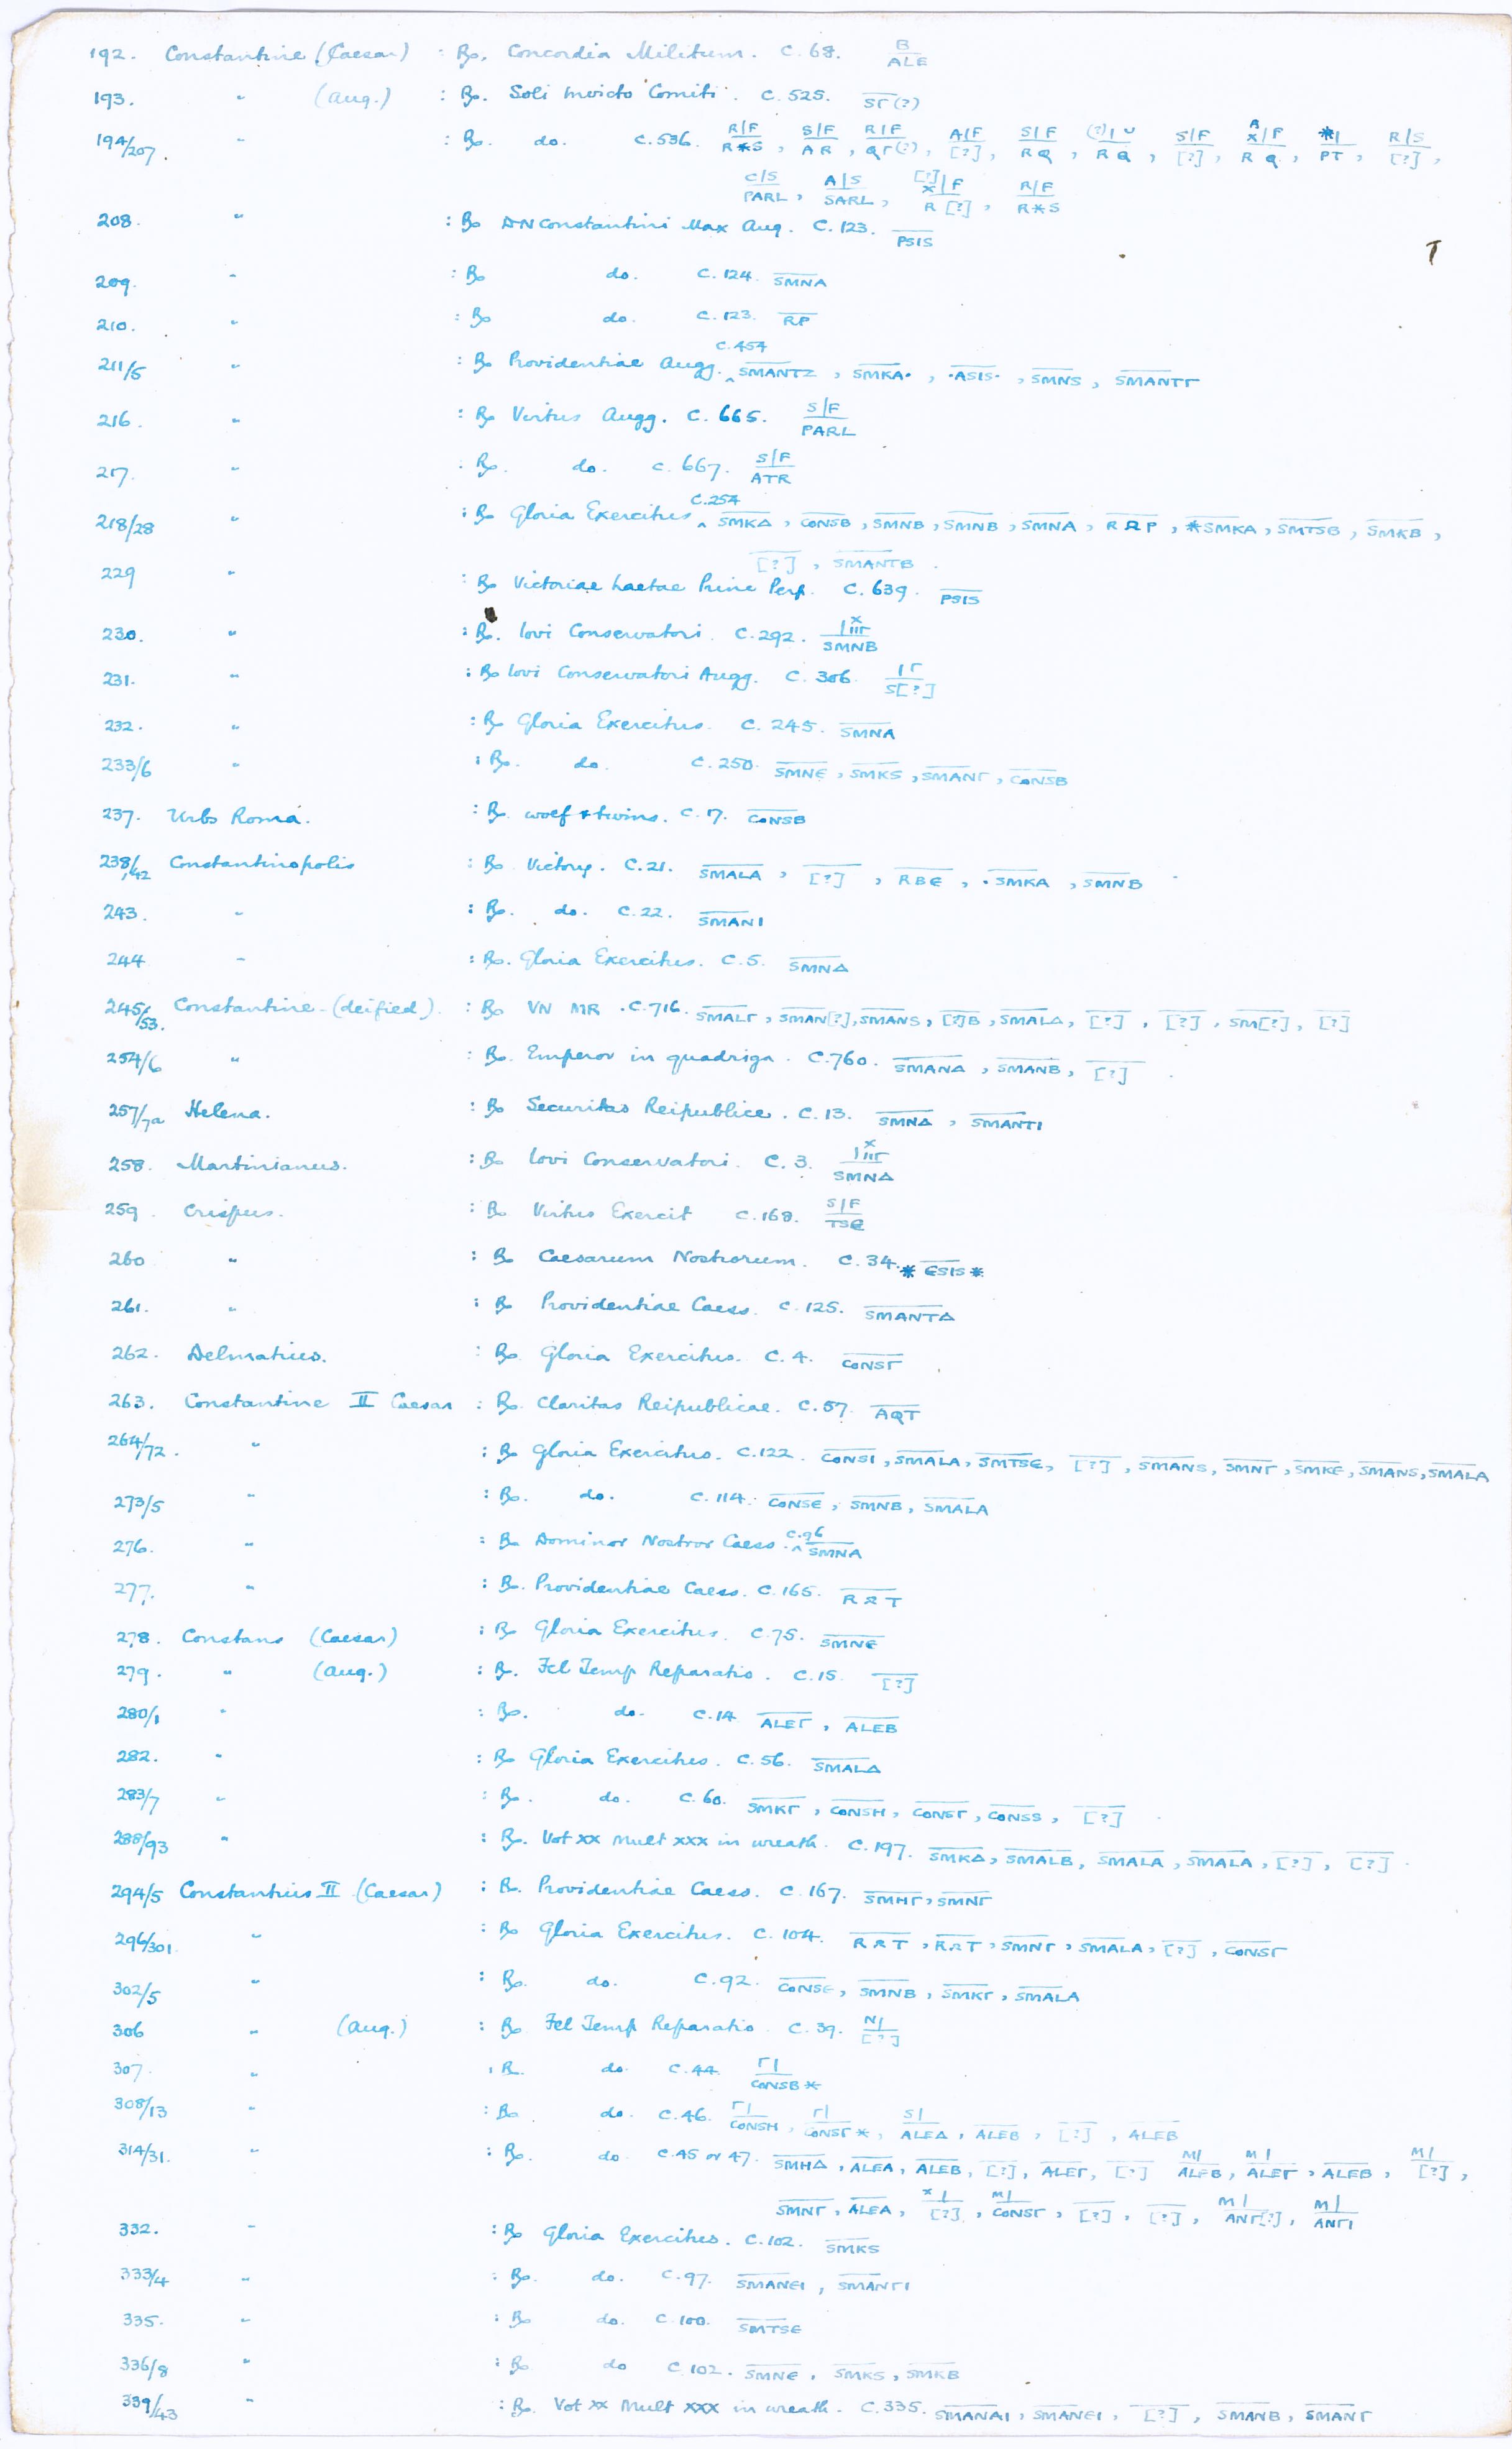 192. Constantine (Caesar) : Rx. Concordia Militum. C. 68. B/ALE
193. " (Aug.) : Rx. Soli Invicto Comiti. C. 525. SΓ(?)
194/207. " : Rx. do. C. 536. R|F/R*S, S|F/AR, R|F/QΓ(?), A|F/[?], S|F/RQ, (?)|U/RQ, S|F/[?], R X|F/RQ, *|/PT, R|S/[?],
C|S/PARL, A|S/SARL, [?]X|F/R[?], R|F/R*S
208. " : Rx DN Constantini Max Aug. C. 123. PSIS
209. " : Rx do. C. 124. SMNA
210. " : Rx do. C. 123. RP
211/5 " : Rx Providentiae Augg. C.454 SMANTZ, SMKA•, •ASIS•, SMNS, SMANTΓ
216. " : Rx Virtus Augg. C. 665. S|F/PARL
217. " : Rx. do. C. 667. S|F/ATR
218/28 " : Rx Gloria Exercitus C.254 SMKΔ, CONSB, SMNB, SMNB, SMNA, RP, *SMKA, SMTSB, SMKB,
[?], SMANTB.
229 " : Rx Victoriae Laetae Princ Perp. C. 639. PSIS
230. " : Rx. Iovi Conservatori. C. 292. |X IIΓ/SMNB
231. " : Rx Iovi Conservatori Augg. C. 306. |Γ/S[?]
232. " : Rx Gloria Exercitus. C. 245. SMNA
233/6 " : Rx. do. C. 250. SMNE, SMKS, SMANΓ, CONSB
237. Urbs Roma. : Rx. wolf + twins. C. 17. CONSB
238/42 Constantinopolis : Rx. Victory. C. 21. SMALA, [?], RBE, •SMKA, SMNB
243. " : Rx. do. C. 22. SMANI
244 " : Rx. Gloria Exercitus. C. 5. SMNΔ
245/53. Constantine (deified). : Rx VN MR. C. 716. SMALΓ, SMAN[?], SMANS, [?]B, SMALΔ, [?], [?], SM[?], [?]
254/6 " : Rx. Emperor in quadriga. C. 760. SMANΔ, SMANB, [?].
257/7a Helena. : Rx Securitas Reipublice. C. 13. SMNΔ, SMANTI
258. Martinianus. : Rx Iovi Conservatori. C. 3. |X IIΓ/SMNΔ
259. Crispus. : Rx Virtus Exercit C. 168. S|F/TSE
260 " : Rx Caesarum Nostrorum. C. 34. *ESIS*
261. " : Rx Providentiae Caess. C. 125. SMANTΔ
262. Delmatius. : Rx Gloria Exercitus. C. 4. CONSΓ
263. Constantine II Caesar : Rx. Claritas Reipublicae. C. 57. AQT
264/72. " : Rx Gloria Exercitus. C. 122. CONSI, SMALA, SMTSE, [?], SMANS, SMNΓ, SMKE, SMANS, SMALA
273/5 " : Rx. do. C. 114. CONSE, SMNB, SMALA
276. " : Rx Dominor Nostror Caess. C.96 SMNA
277. " : Rx. Providentiae Caess. C. 165. RT
278. Constans (Caesar) : Rx Gloria Exercitus. C. 75. SMNE
279. " (Aug.) : Rx. Fel Temp Reparatio. C. 15. [?]
280/1 " : Rx. do. C. 14 ALEΓ, ALEB
282. " : Rx Gloria Exercitus. C. 56. SMALΔ
283/7 " : Rx. do. C. 60. SMKΓ, CONSH, CONSΓ, CONSS, [?]
288/93 " : Rx. Vot XX Mult XXX in wreath. C. 197. SMKΔ, SMALB, SMALA, SMALA, [?], [?].
294/5 Constantius II (Caesar) : Rx. Providentiae Caess. C. 167. SMHΓ, SMNΓ
296/301 " : Rx Gloria Exercitus. C. 104. RT, RT, SMNΓ, SMALA, [?], CONSΓ
302/5 " : Rx. do. C. 92. CONSE, SMNB, SMKΓ, SMALA
306 " (Aug.) : Rx Fel Temp Reparatio C. 39. N|/[?]
307. " : Rx. do. C. 44. Γ|/CONSB*
308/13 " : Rx do. C. 46. Γ|/CONSH, Γ|/CONSΓ*, S|/ALEΔ, ALEB, [?], ALEB
314/31. " : Rx. do C. 45 or 47. SMHΔ, ALEA, ALEB, [?], ALEΓ, [?] M|/ALEB, M|/ALEΓ, ALEB, M|/[?],
SMNΓ, ALEA, X|/[?], M|/CONSΓ, [?], [?], M|/ANΓ[?], M|/ANΓI
332. " : Rx Gloria Exercitus. C. 102. SMKS
333/4 " : Rx. do. C. 97. SMANEI, SMANΓI
335. " : Rx do. C. 100. SMTSE
336/8 " : Rx do C. 102. SMNE, SMKS, SMKB
339/43 " : Rx. Vot XX Mult XXX in wreath. C. 335. SMANAI, SMANEI, [?], SMANB, SMANΓ